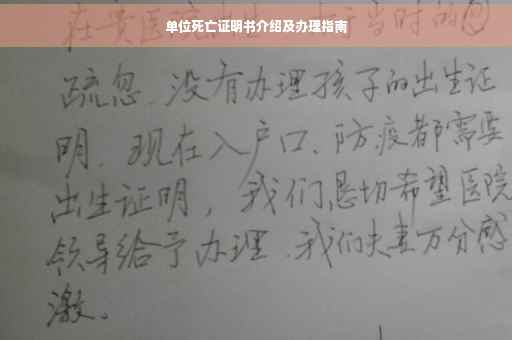 单位死亡证明书介绍及办理指南
在贵医院出生，由于当时的
疏忽，没有办理孩子的出生证
明，现在入户口、防疫都需要
出生证明，我们恳切希望医院
领导给予办理，我们夫妻万分感
激。